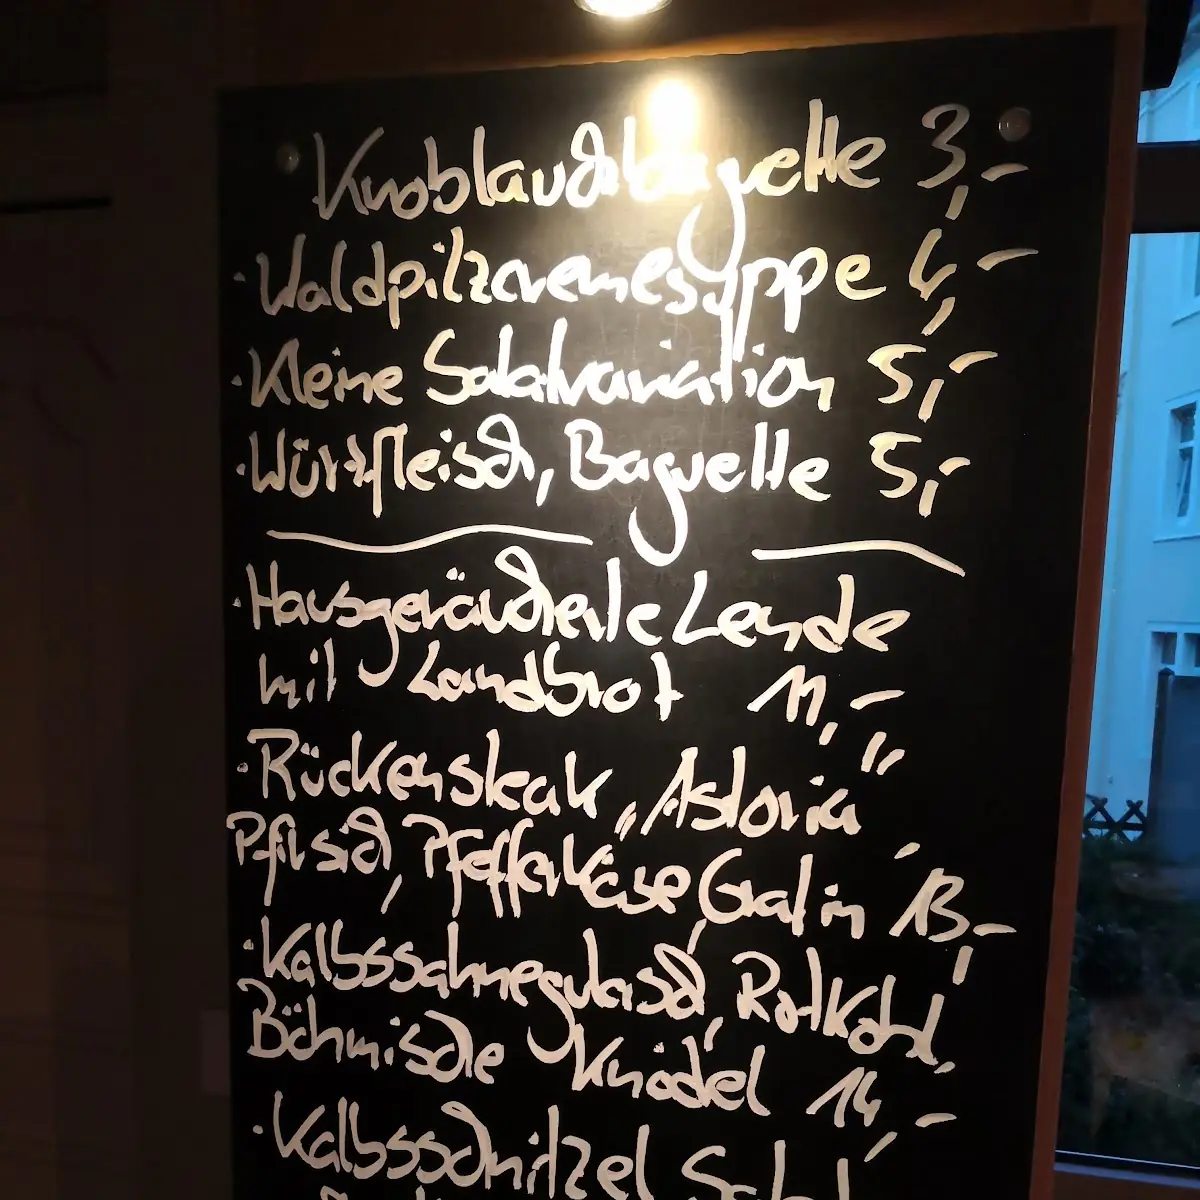 Knoblauchbaguette 3,-
· Waldpilzcremesuppe 4,-
· Kleine Salatvariation 5,-
· Würzfleisch, Baguette 5,-
· Hausgeräucherte Lende
mit Landbrot 11,-
· Rückensteak „Astoria"
Pfirsich, Pfefferkäse, Gratin 13,-
· Kalbssahnegulasch, Rotkohl,
Böhmische Knödel 14,-
· Kalbsschnitzel, Salat